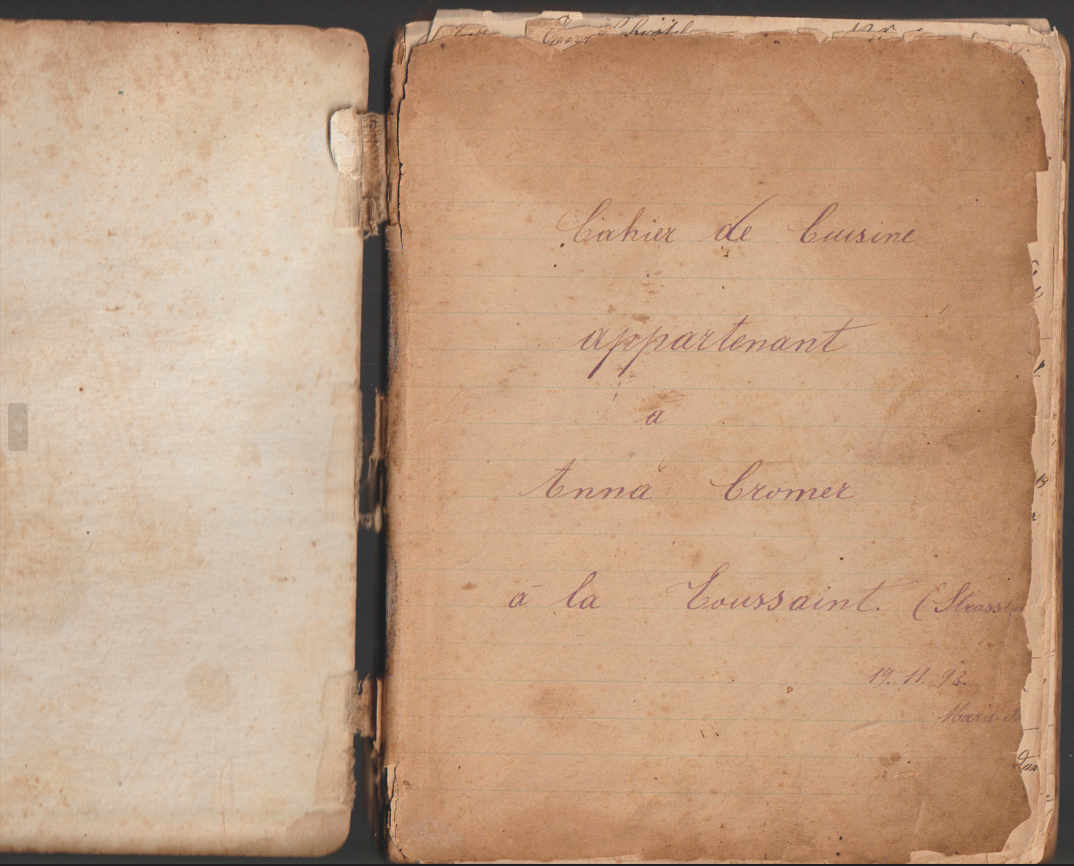 Cahier de Cuisine
appartenant
a
Anna Cromer
à la Toussaint. (Strass
19. 11. 93.